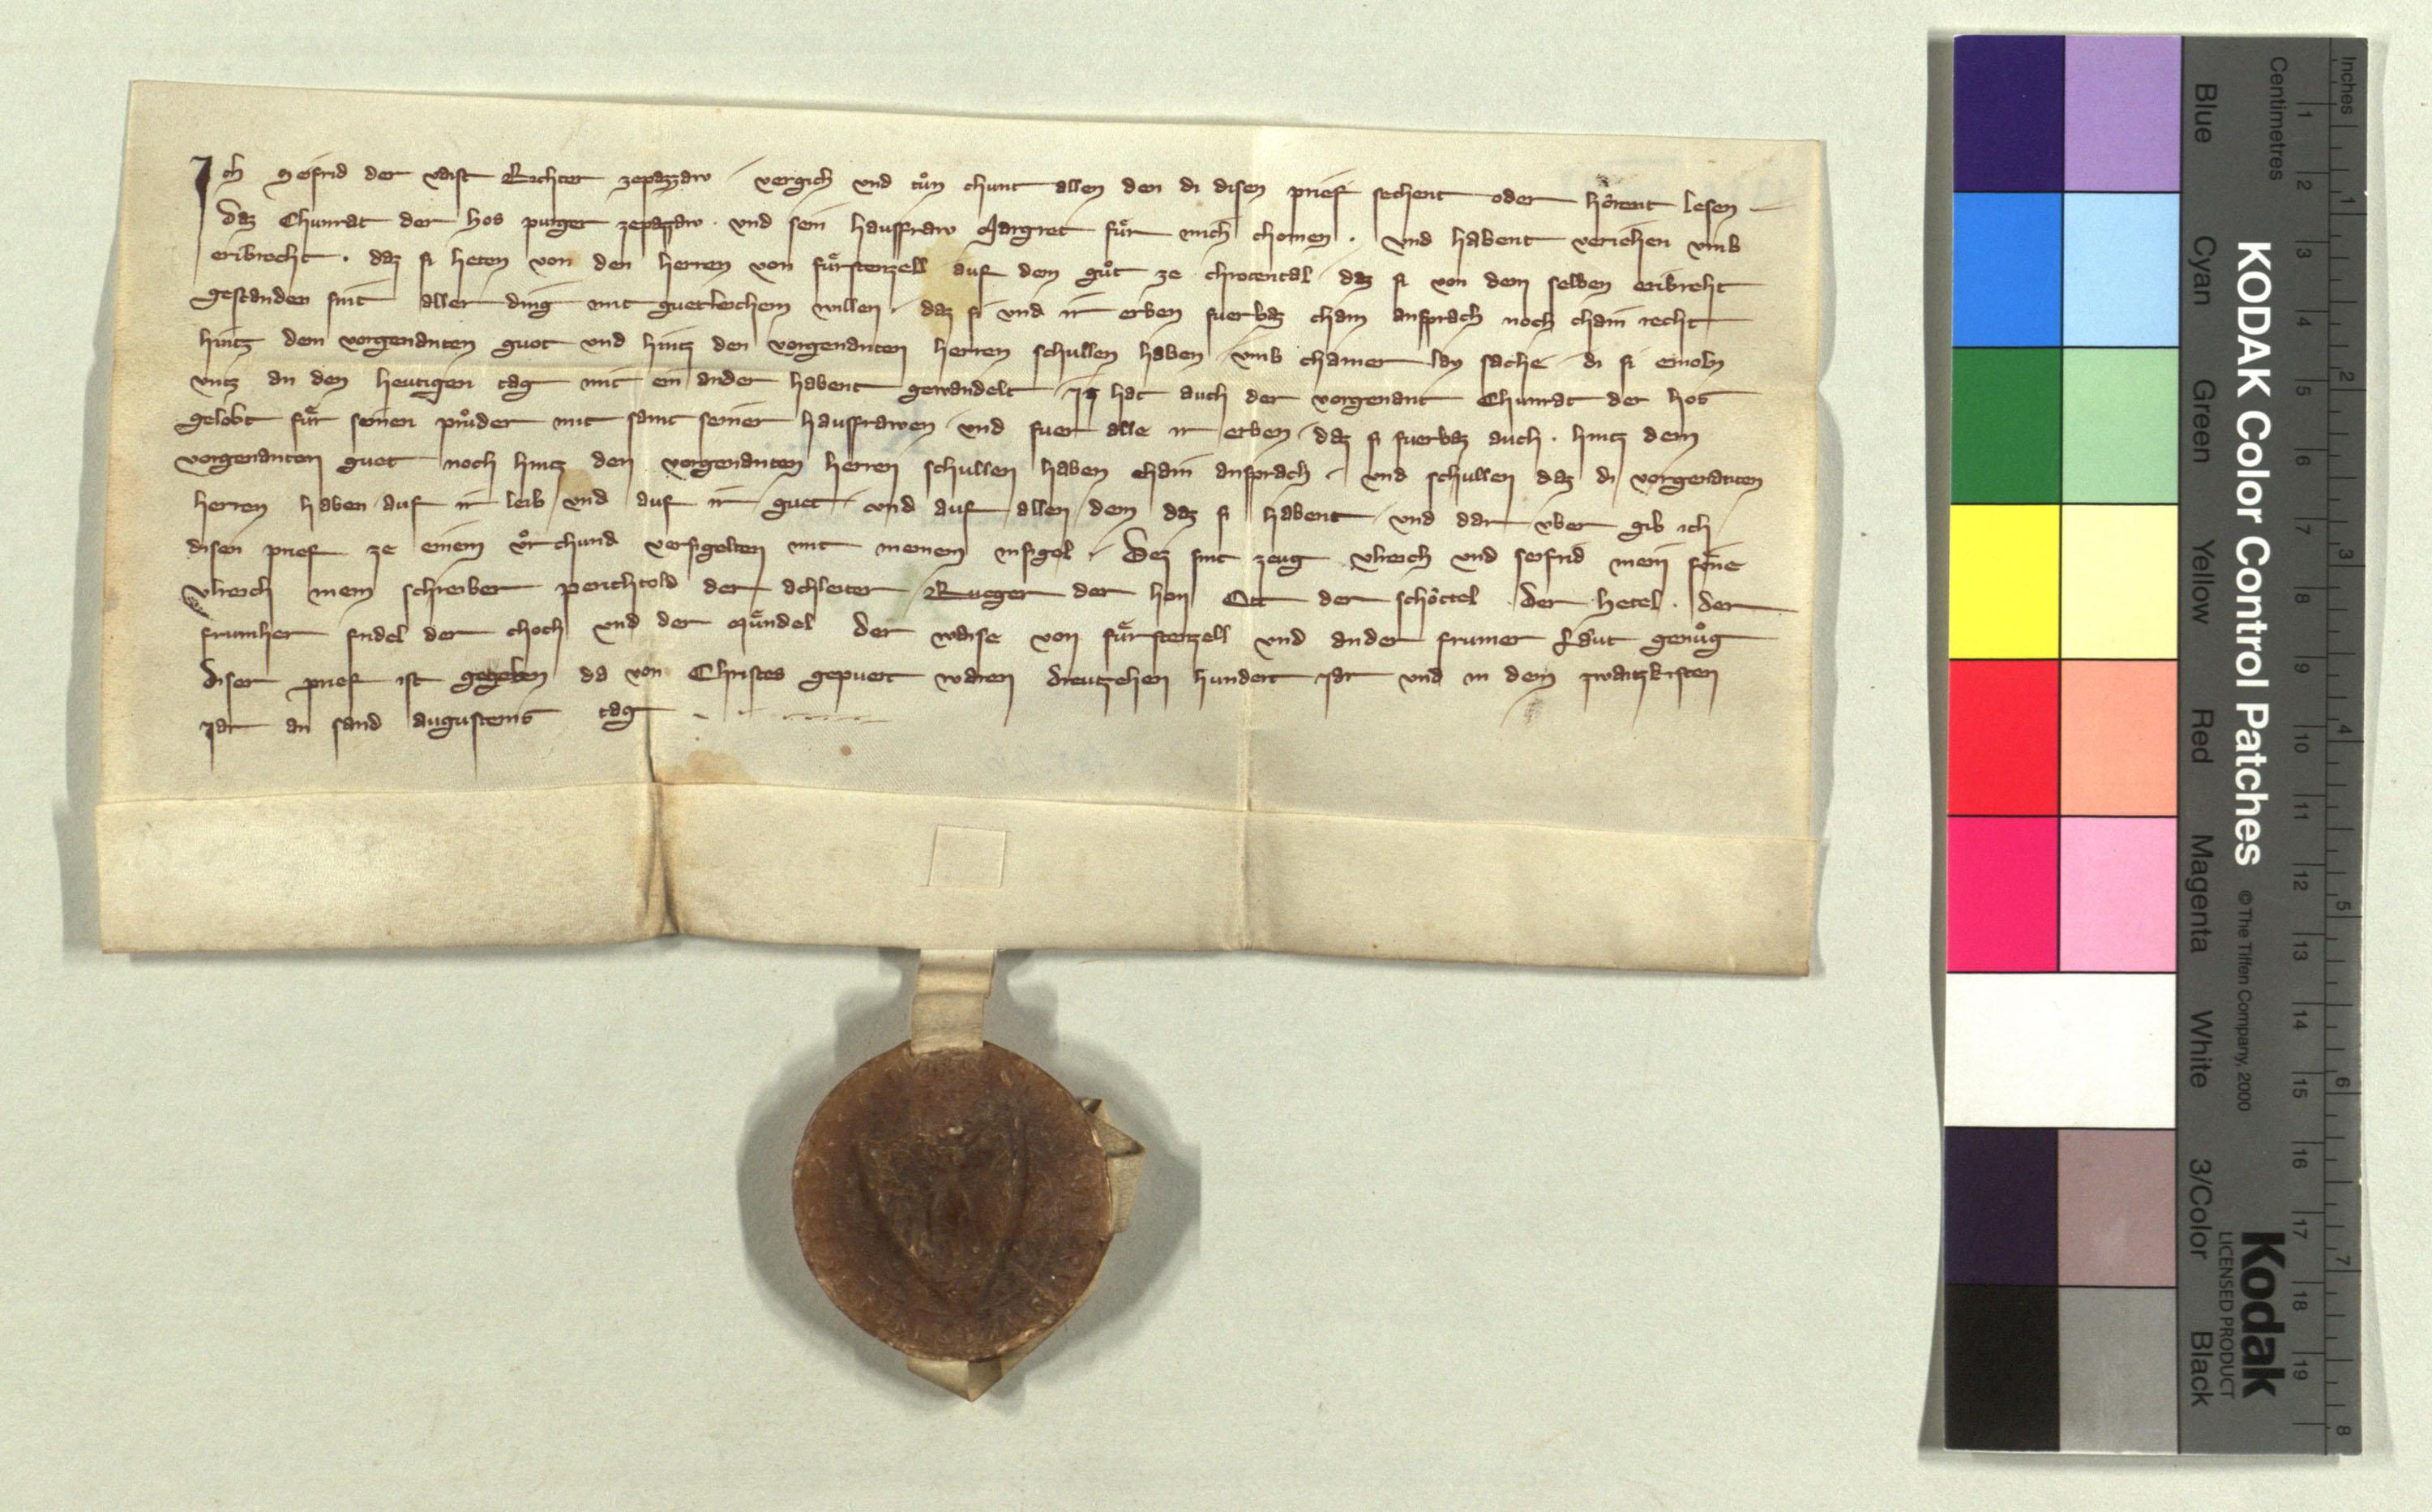 Ich Seifrid der vaist Richter zepazzaw vergich vnd tůn chunt allen den di disen prief sechent oder hôrent lesen
daz Chunrat der hos purger zepazzaw · vnd sein hausfraw Margret fůr mich chomen · vnd habent veriehen vmb
eribrecht · daz si heten von den herren von fůrstenzell auf dem gůt ze chrotental daz si von dem selben eribreht
gestanden sint aller ding mit guetleichem willen · daz si vnd ir erben fuerbaz chain ansprach noch chain recht
hintz dem vorgenanten guot vnd hintz den vorgenanten herren schullen haben vmb chainer lay sache di si
vntz an den heutigen tag mit ein ander habent gewandelt Iz hat auch der vorgenant Chunrat der hos
gelobt fůr seinen průder mit samt seiner hausfrawen vnd fuer alle ir erben daz si fuerbaz auch · hintz dem
vorgenanten guet noch hintz den vorgenanten herren schullen haben chain ansprach · vnd schullen daz di vorgenanten
herren haben auf ir leib vnd auf ir guet vnd auf allen dem daz si habent vnd dar vber gib ich
disen prief ze einem vrchund versigelten mit meinem insigel · Dez sint zeug vlreich vnd seifrid mein sŏne
vlreich mein schreiber perichtold der achleiter Rueger der Ott der schôttel der hetel · der
frumher fridel der choch vnd der můndel der waise von fůrstenzell vnd ander frumer Låut genůg
diser prief ist gegeben da von Christes gepuert waren dreutzehen hundert Iar vnd in dem zwaitzkisten
Iar an sand augusteins tag
KODAK Color Control Patches
© The Tiffen Company, 2000
Kodak
LICENSED PRODUCT
Blue Cyan Green Yellow Red Magenta White 3/Color Black
Inches 1 2 3 4 5 6 7 8
Centimetres 1 2 3 4 5 6 7 8 9 10 11 12 13 14 15 16 17 18 19